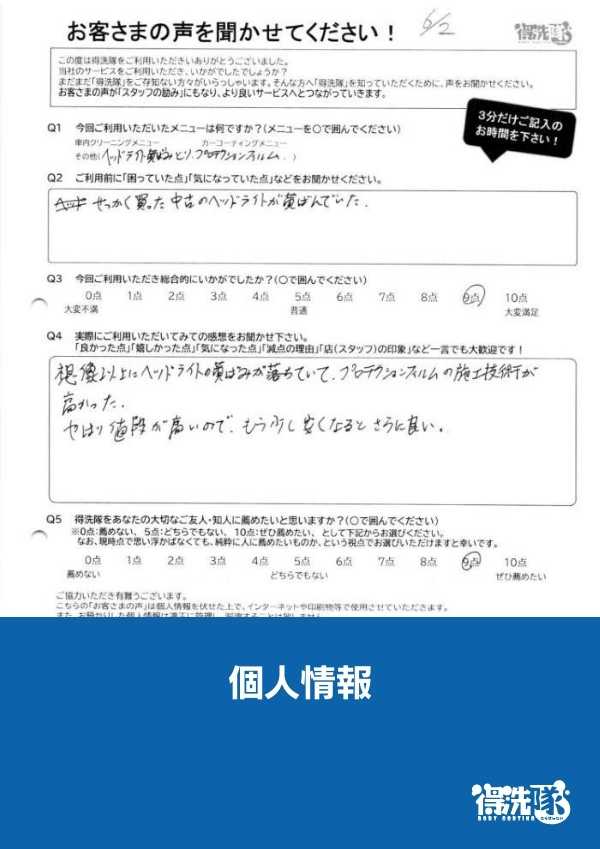 お客さまの声を聞かせてください！
6/2
得洗隊
この度は得洗隊をご利用いただきありがとうございました。
当社のサービスをご利用いただき、いかがでしたでしょうか？
まだまだ「得洗隊」をご存知ない方々がいらっしゃいます。そんな方へ「得洗隊」を知っていただくために、声をお聞かせください。
お客さまの声が「スタッフの励み」にもなり、より良いサービスへとつながっていきます。
3分だけご記入の
お時間を下さい！
Q1 今回ご利用いただいたメニューは何ですか？（メニューを〇で囲んでください）
車内クリーニングメニュー カーコーティングメニュー
その他（ヘッドライト黄ばみとり、プロテクションフィルム ）
Q2 ご利用前に「困っていた点」「気になっていた点」などをお聞かせください。
せっかく買った中古のヘッドライトが黄ばんでいた。
Q3 今回ご利用いただき総合的にいかがでしたか？（〇で囲んでください）
0点 1点 2点 3点 4点 5点 6点 7点 8点 9点 10点
大変不満 普通 大変満足
Q4 実際にご利用いただいてみての感想をお聞かせ下さい。
「良かった点」「嬉しかった点」「気になった点」「減点の理由」「店（スタッフ）の印象」など一言でも大歓迎です！
想像以上にヘッドライトの黄ばみが落ちていて、プロテクションフィルムの施工技術が
高かった。
やはり値段が高いので、もう少し安くなるとさらに良い。
Q5 得洗隊をあなたの大切なご友人・知人に薦めたいと思いますか？（〇で囲んでください）
※0点：薦めない、5点：どちらでもない、10点：ぜひ薦めたい、として下記からお選びください。
なお、現時点で思い浮かばなくても、純粋に人に薦めたいものか、という視点でお選びいただけますと幸いです。
0点 1点 2点 3点 4点 5点 6点 7点 8点 9点 10点
薦めない どちらでもない ぜひ薦めたい
ご協力いただき有難うございます。
こちらの「お客さまの声」は個人情報を伏せた上で、インターネットや印刷物等で使用させていただきます。
個人情報
得洗隊
BODY COATING